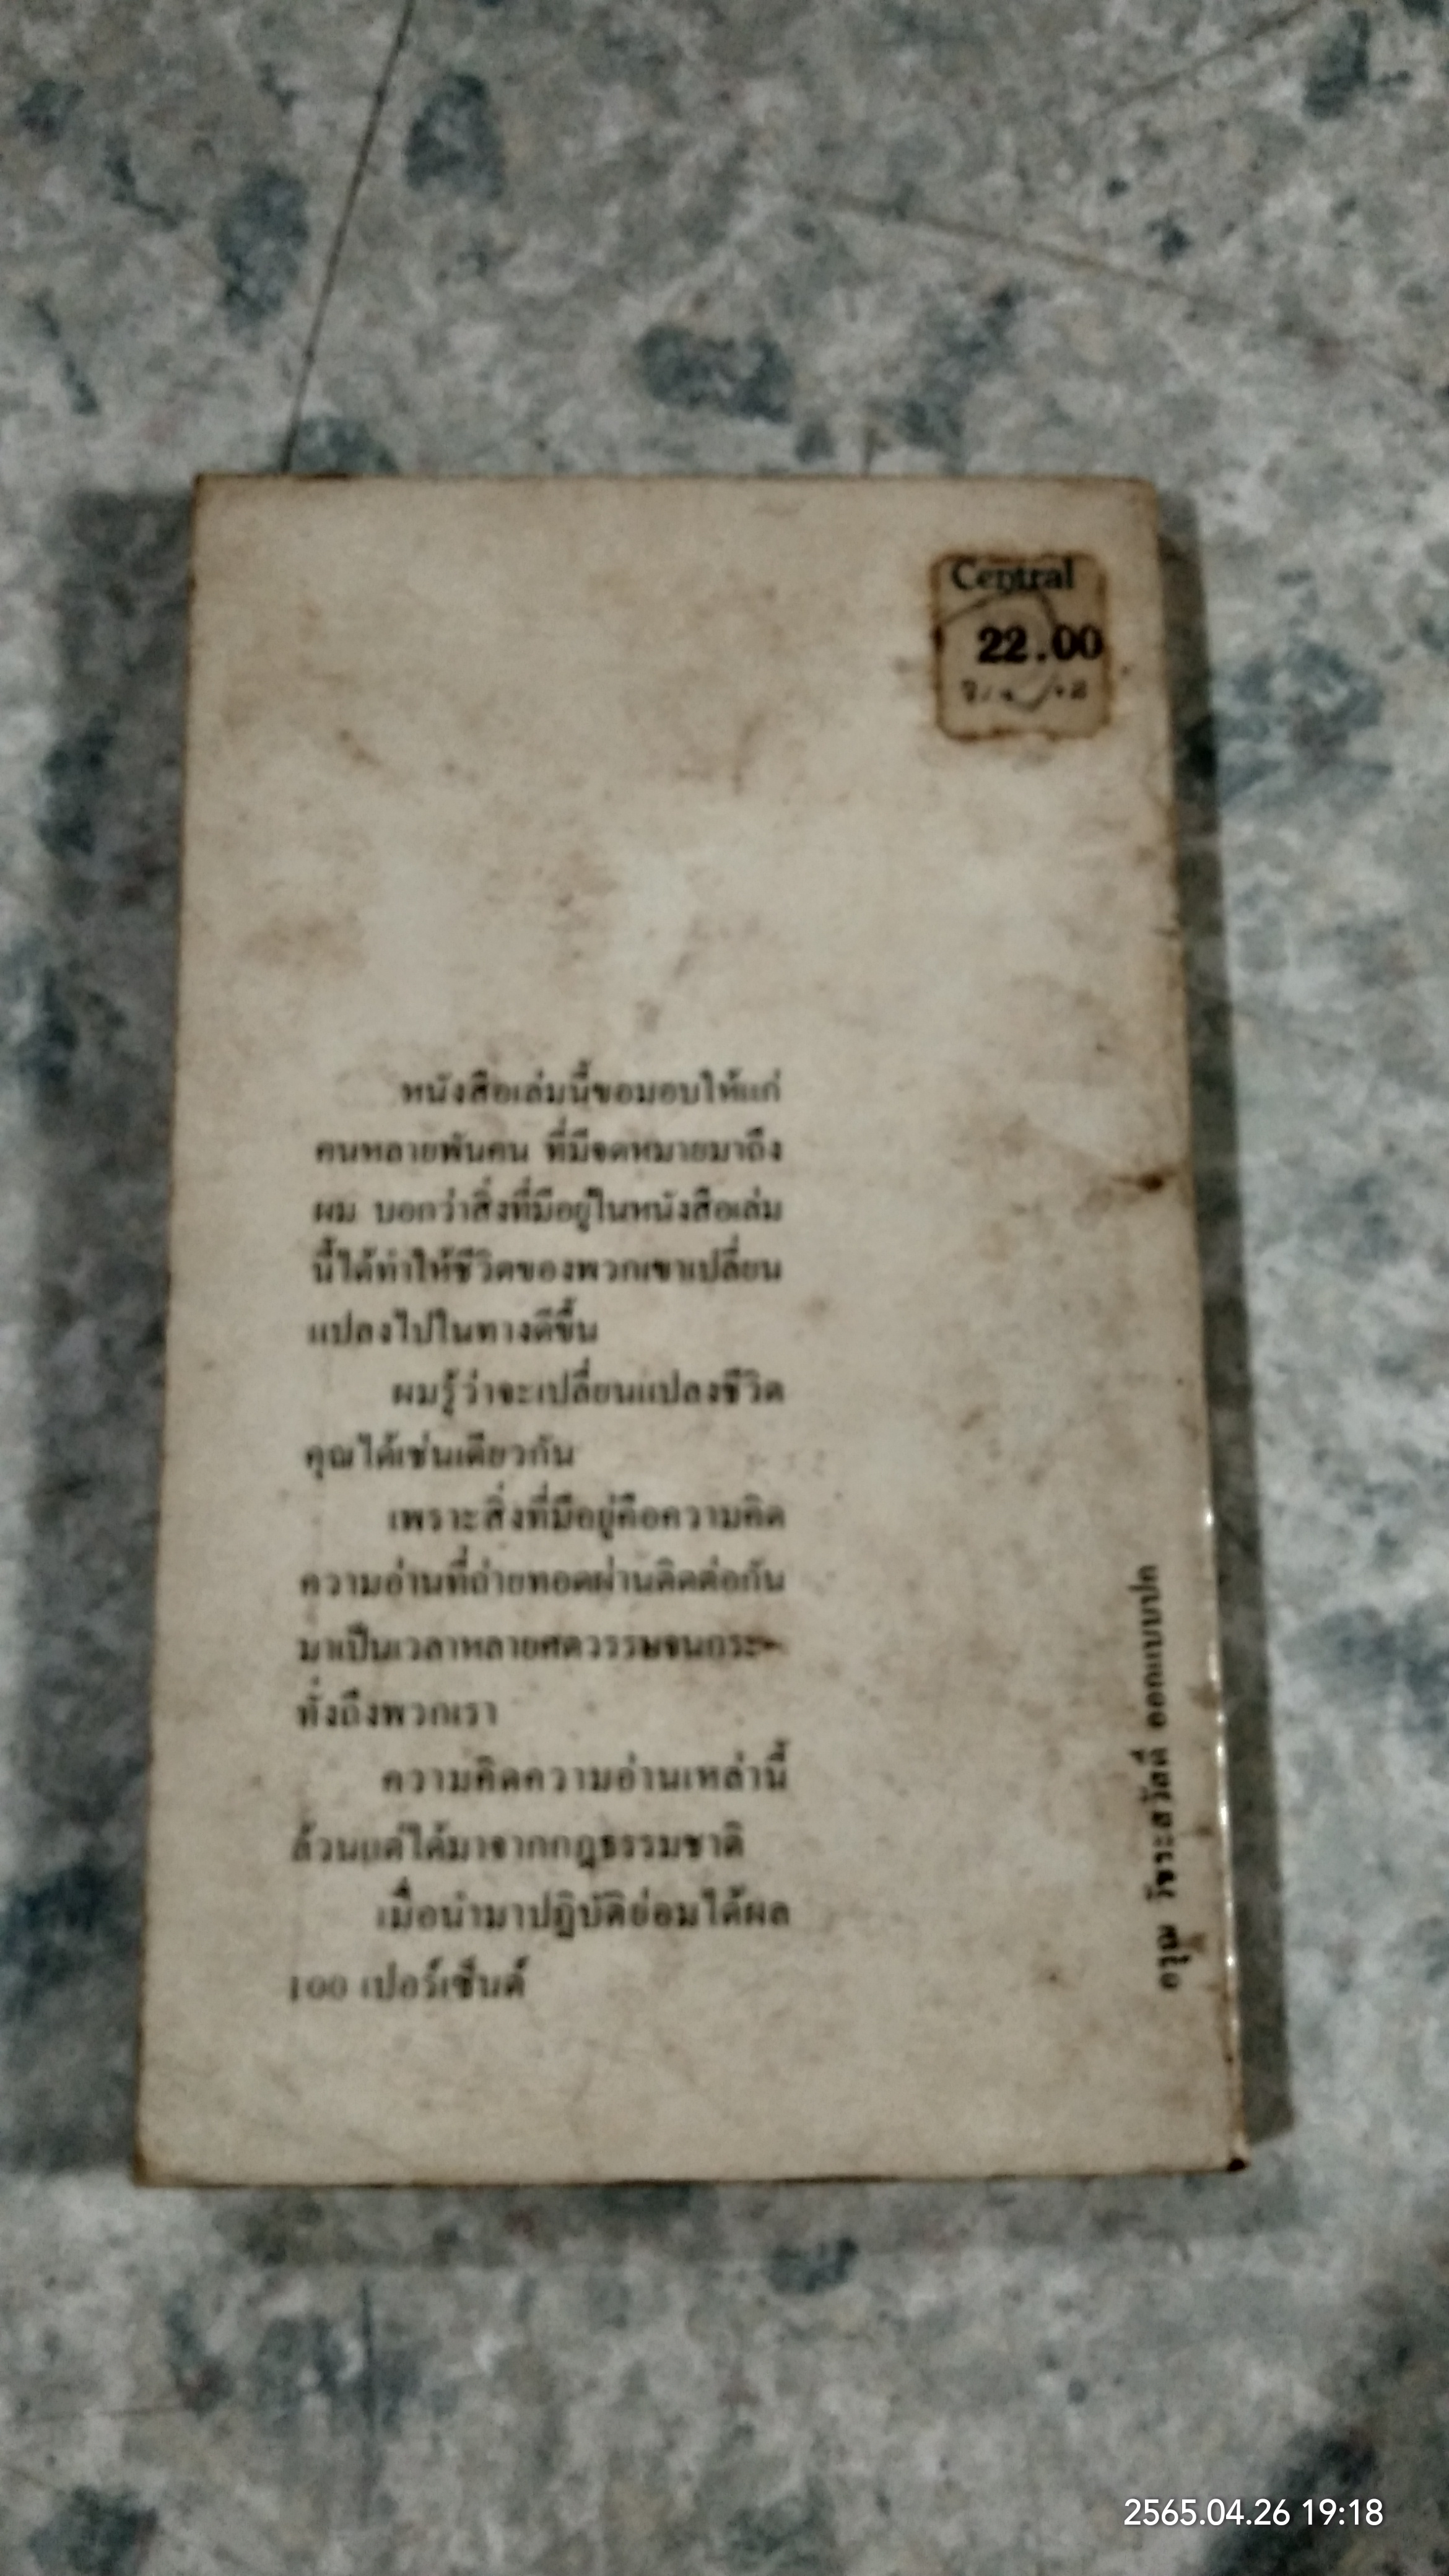 Central
22.00
หนังสือเล่มนี้ขอมอบให้แก่
คนหลายพันคน ที่มีจดหมายมาถึง
ผม บอกว่าสิ่งที่มีอยู่ในหนังสือเล่ม
นี้ได้ทำให้ชีวิตของพวกเขาเปลี่ยน
แปลงไปในทางดีขึ้น
ผมรู้ว่าจะเปลี่ยนแปลงชีวิต
คุณได้เช่นเดียวกัน
เพราะสิ่งที่มีอยู่คือความคิด
ความอ่านที่ถ่ายทอดผ่านติดต่อกัน
มาเป็นเวลาหลายศตวรรษจนกระ-
ทั่งถึงพวกเรา
ความคิดความอ่านเหล่านี้
ล้วนแต่ได้มาจากกฎธรรมชาติ
เมื่อนำมาปฏิบัติย่อมได้ผล
100 เปอร์เซ็นต์
อรุณ วัชระสวัสดิ์ ออกแบบปก
2565.04.26 19:18